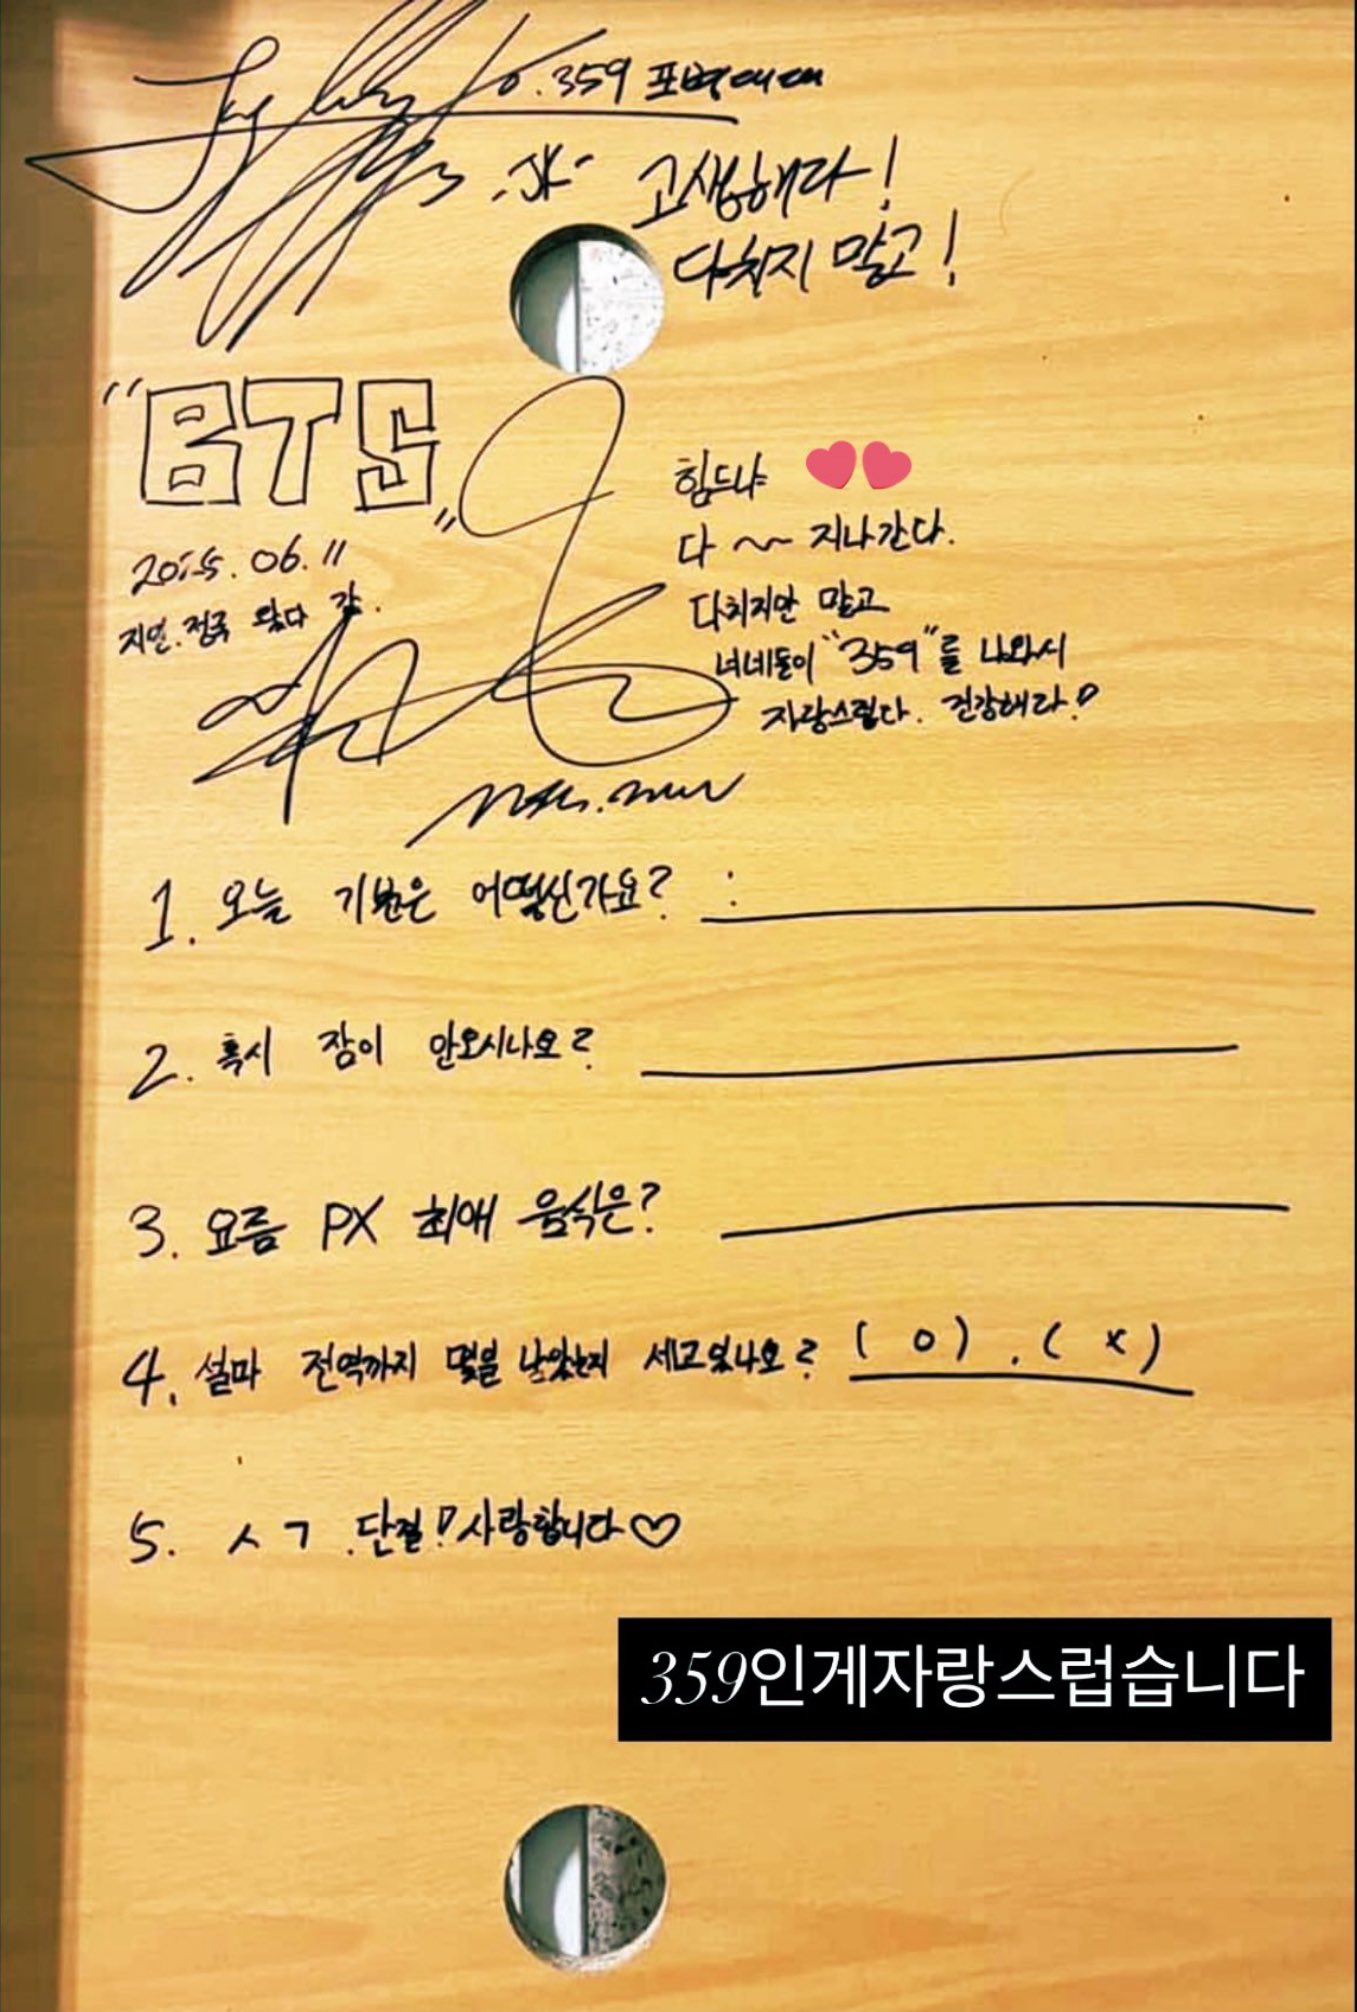 To. 359 포병대대
-JK-
고생해라!
다치지 말고!
"BTS"
2025.06.11
지민.정국 왔다 감.
힘드냐
다 ~~ 지나간다.
다치지만 말고
너네들이 "359"를 나와서
자랑스럽다. 건강해라!
1. 오늘 기분은 어떻신가요? :
2. 혹시 잠이 안오시나요?
3. 요즘 PX 최애 음식은?
4. 설마 전역까지 몇일 남았는지 세고있나요? ( O ) . ( X )
5. ㅅㄱ .단결! 사랑합니다♡
359인게자랑스럽습니다